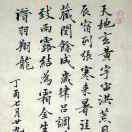 天地玄黃宇宙洪荒日
辰宿列張寒來暑
藏閏餘成歲律呂調
致雨露結為霜金生
潛羽翔龍
丁酉七月